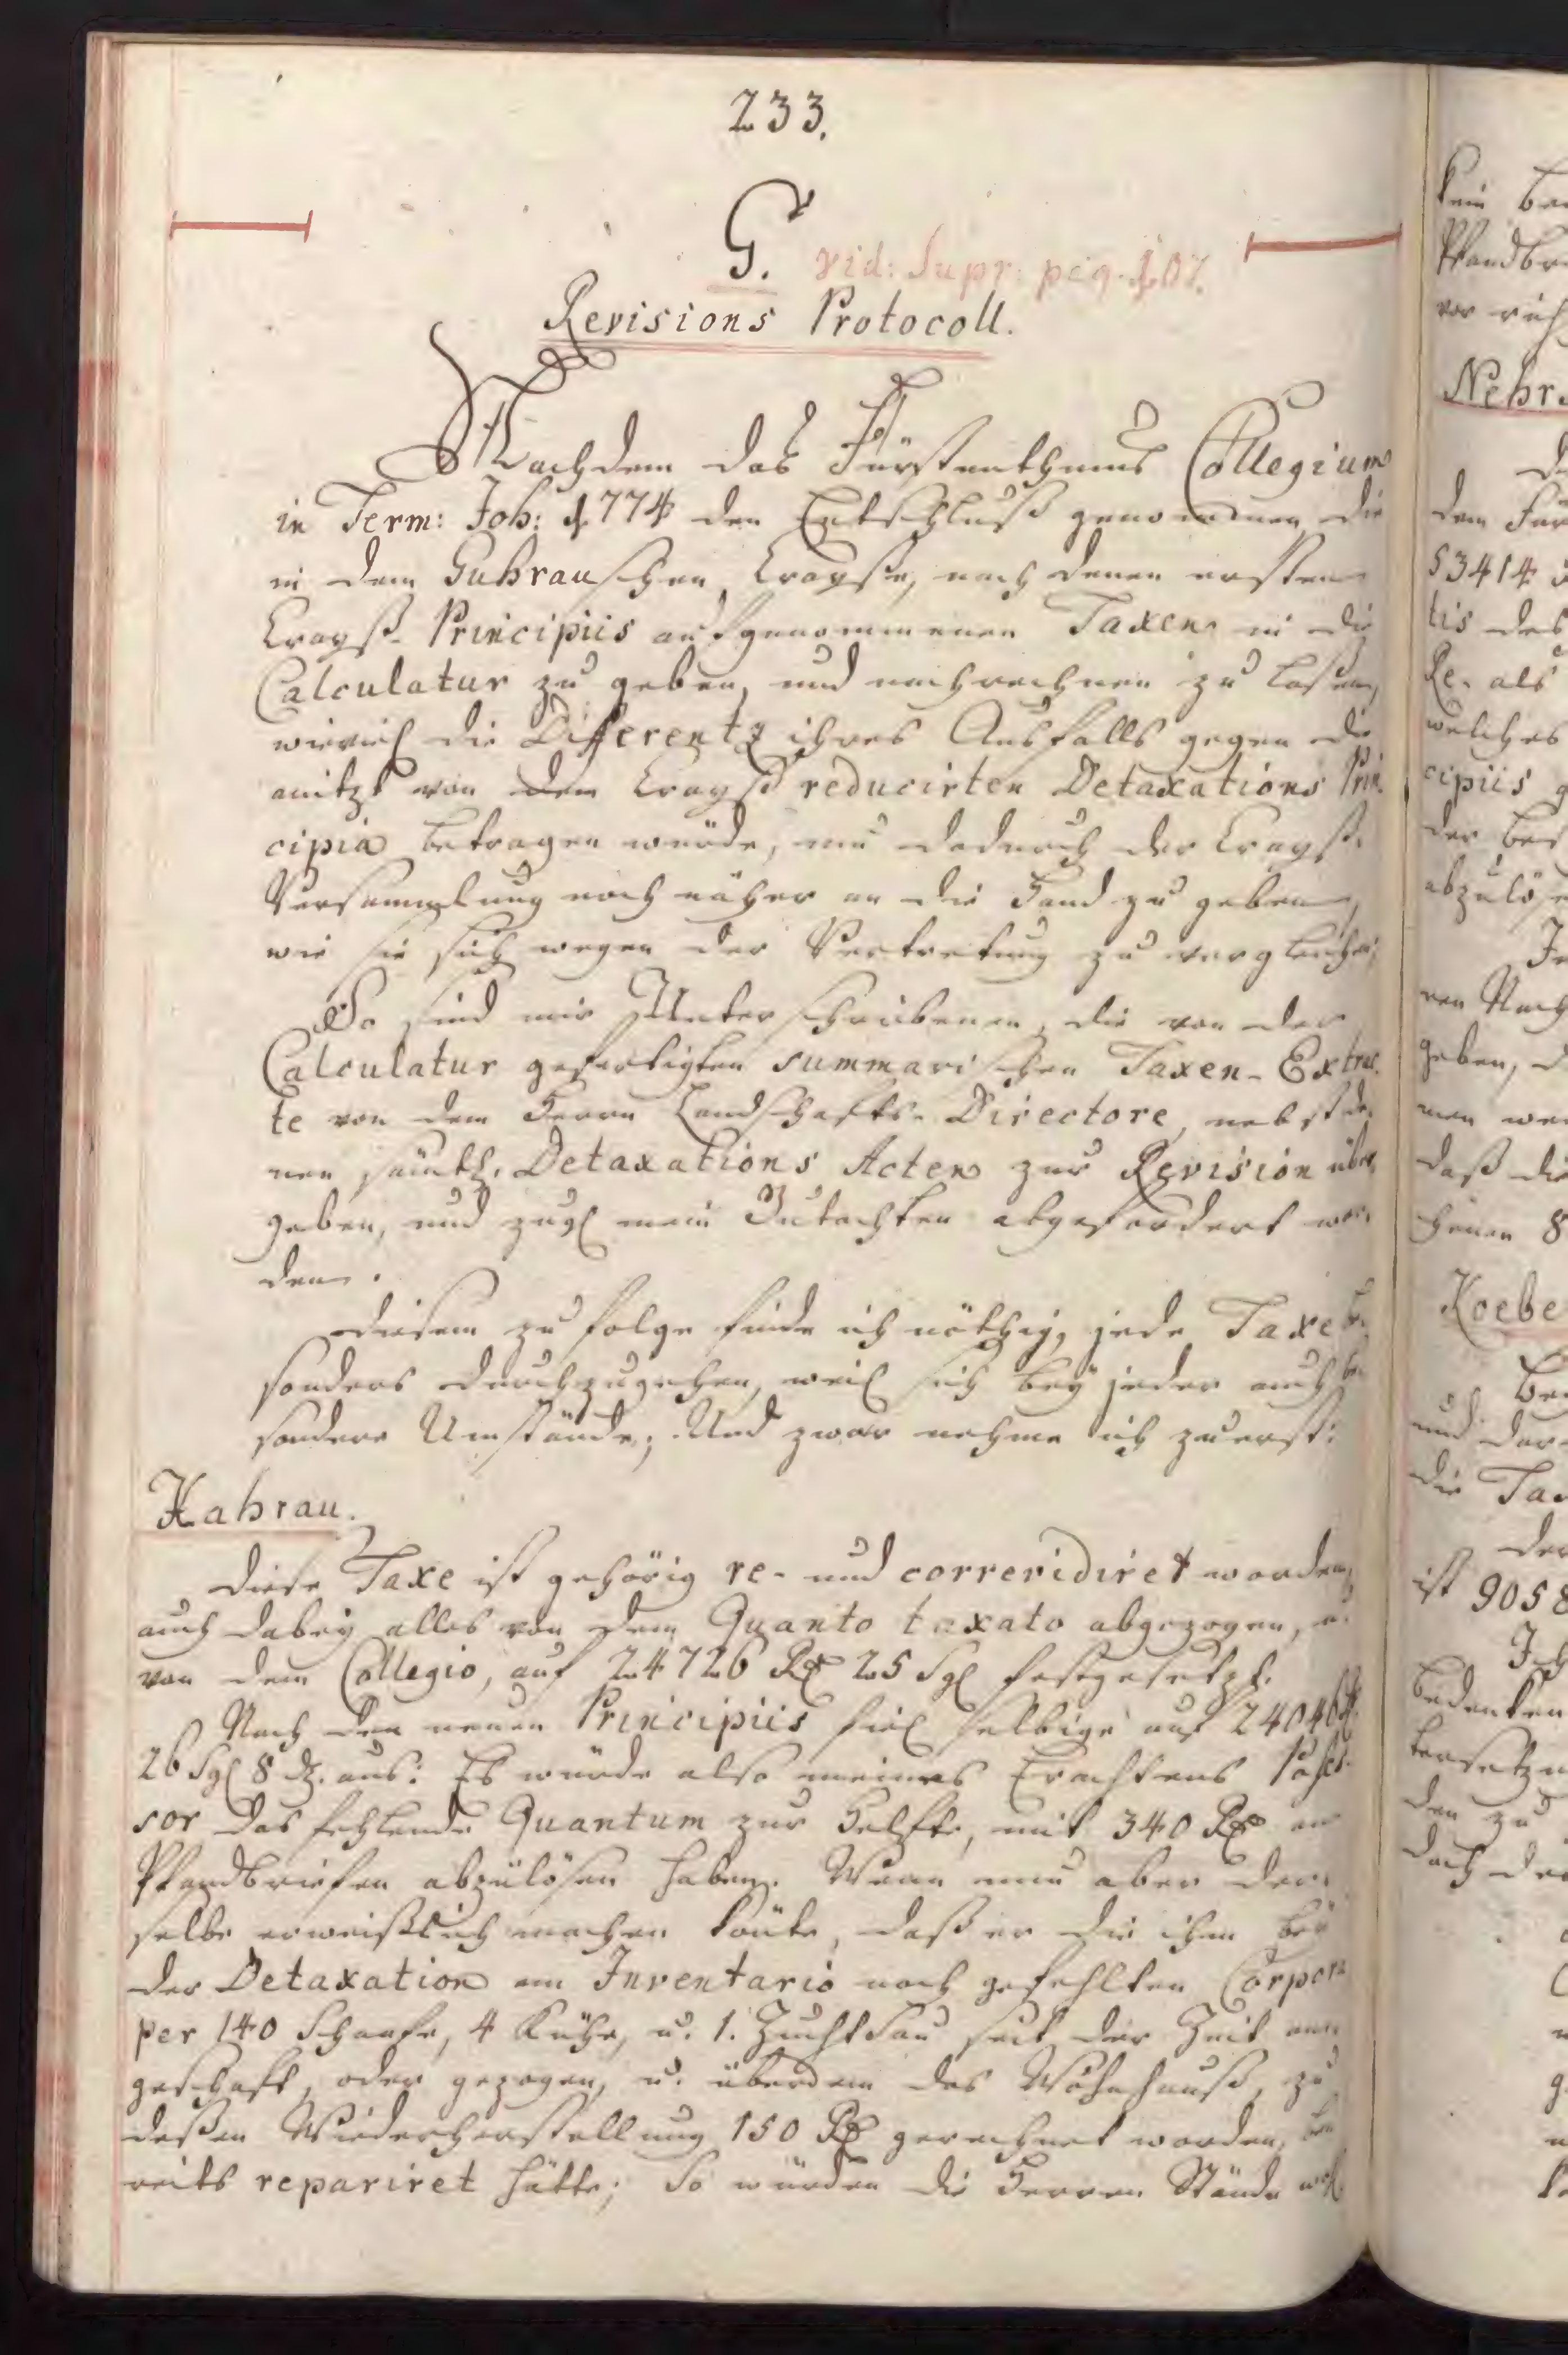 233.
G. vid: Supr: pag. 107.
Revisions Protocoll.
Nachdem das Fürstenthums Collegium
in Term: Joh: 1774 den Entschluß genommen die
in dem Guhrauschen Crayße, nach denen ersten
Crayß-Principiis aufgenommenen Taxen in die
Calculatur zu geben, und nachrechnen zu laßen,
wieviel die Differentz ihres Ausfalls gegen die
anitzt von dem Crayß reducirten Detaxations Prin
cipia betragen würde, um dadurch der Crayß-
Versammlung noch näher an die Hand zu geben,
wie sie sich wegen der Vertretung zu vergleichen;
So sind mir Unterschriebenen, die von der
Calculatur gefertigten summarischen Taxen-Extrac
te von dem Herrn Landschafts-Directore, nebst de
nen sämtl. Detaxations Acten zur Revision über
geben, und zugl mein Gutachten abgefordert wor
den.
Diesem zu folge finde ich nöthig, jede Taxe be
sonders durchzugehen, weil sich bey jeder auch be
sondere Umstände; Und zwar nehme ich zuerst:
Kahrau.
Diese Taxe ist gehörig re- und correvidiret worden,
auch dabey alles von dem Quanto taxato abgezogen, u.
von dem Collegio, auf 24726 Rtl 25 Sgl festgesetzt.
Nach den neuen Principiis fiel selbige auf 24046 Rtl
26 Sgl 8 d. aus: Es würde also meines Erachtens Poßes
sor das fehlende Quantum zur Helfte, mit 340 Rtl an
Pfandbriefen abzulösen haben. Wenn nun aber der
selbe erweißlich machen könte, daß er die ihm bey
der Detaxation am Inventario noch gefehlten Corpora
per 140 Schaafe, 4 Kühe, u. 1. Zucht Sau seit der Zeit an
geschaft, oder gezogen, u. überdem das Wohnhauß, zu
deßen Wiederherstellung 150 Rtl gerechnet worden, be
reits repariret hätte; So würden die Herren Stände wohl